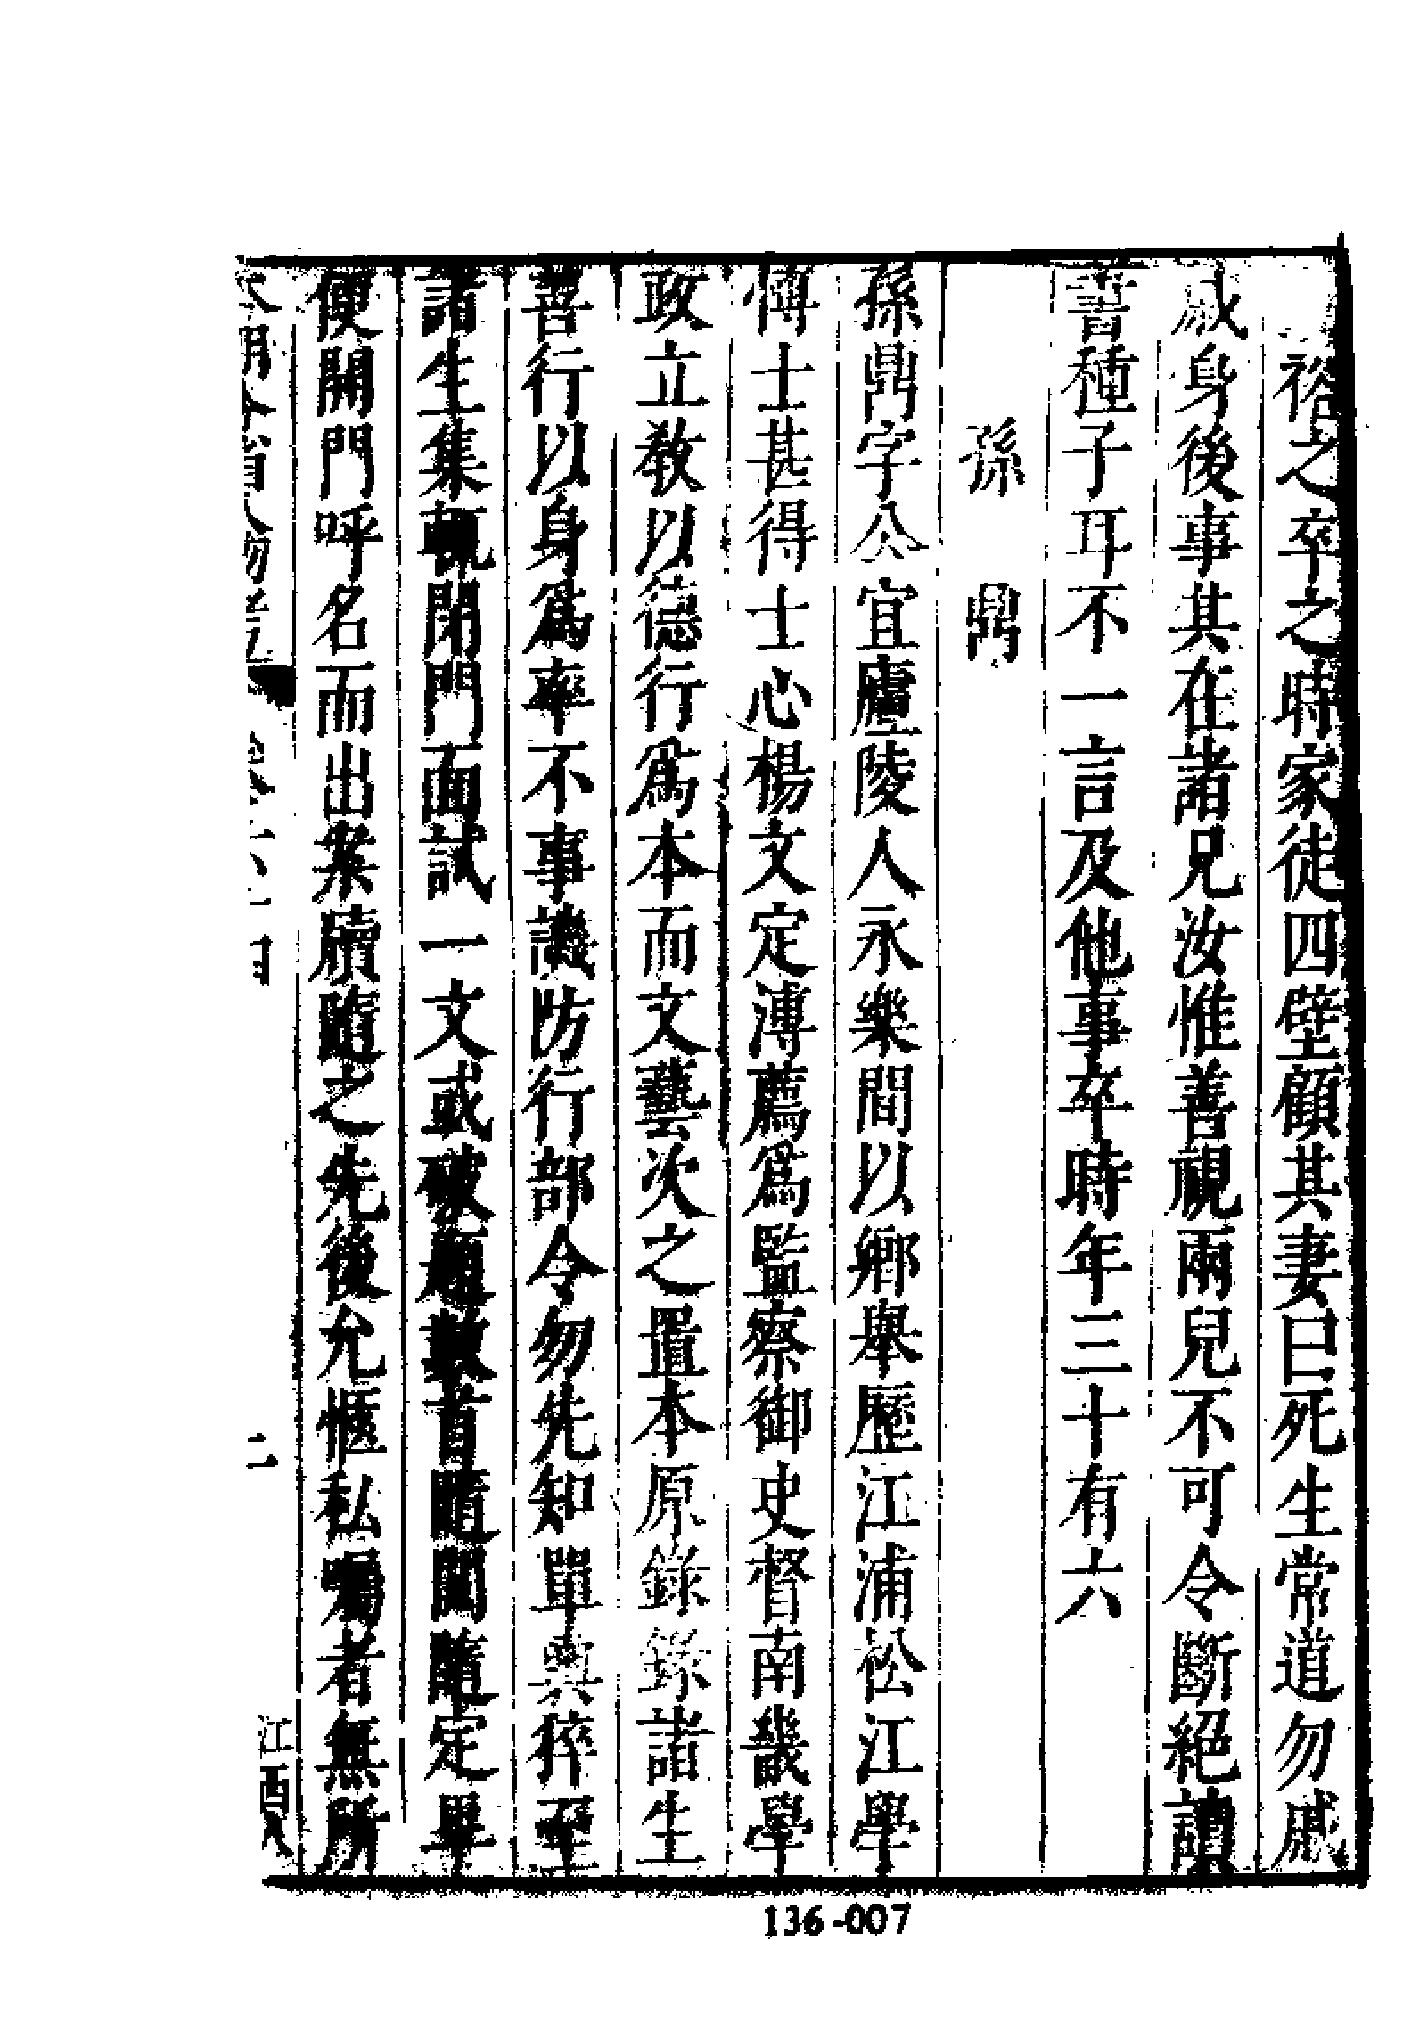 裕之卒之時家徒四壁顧其妻曰死生常道勿戚
戚身後事其在諸兄汝惟善視兩兒不可令斷絕讀
書種子耳不一言及他事卒時年三十有六
孫鼎
孫鼎字公宜廬陵人永樂間以鄉舉歷江浦松江學
博士甚得士心楊文定溥薦爲監察御史督南畿學
政立教以德行爲本而文藝次之置本原錄錄諸生
善行以身爲率不事譏防行部令勿先知單輿猝至
諸生集輒閉門面試一文或破題數首隨閱隨定畢
便開門呼名而出案牘隨之先後允愜私囑者無所
本朝分省人物考 卷六十四 二 江西八
136-007